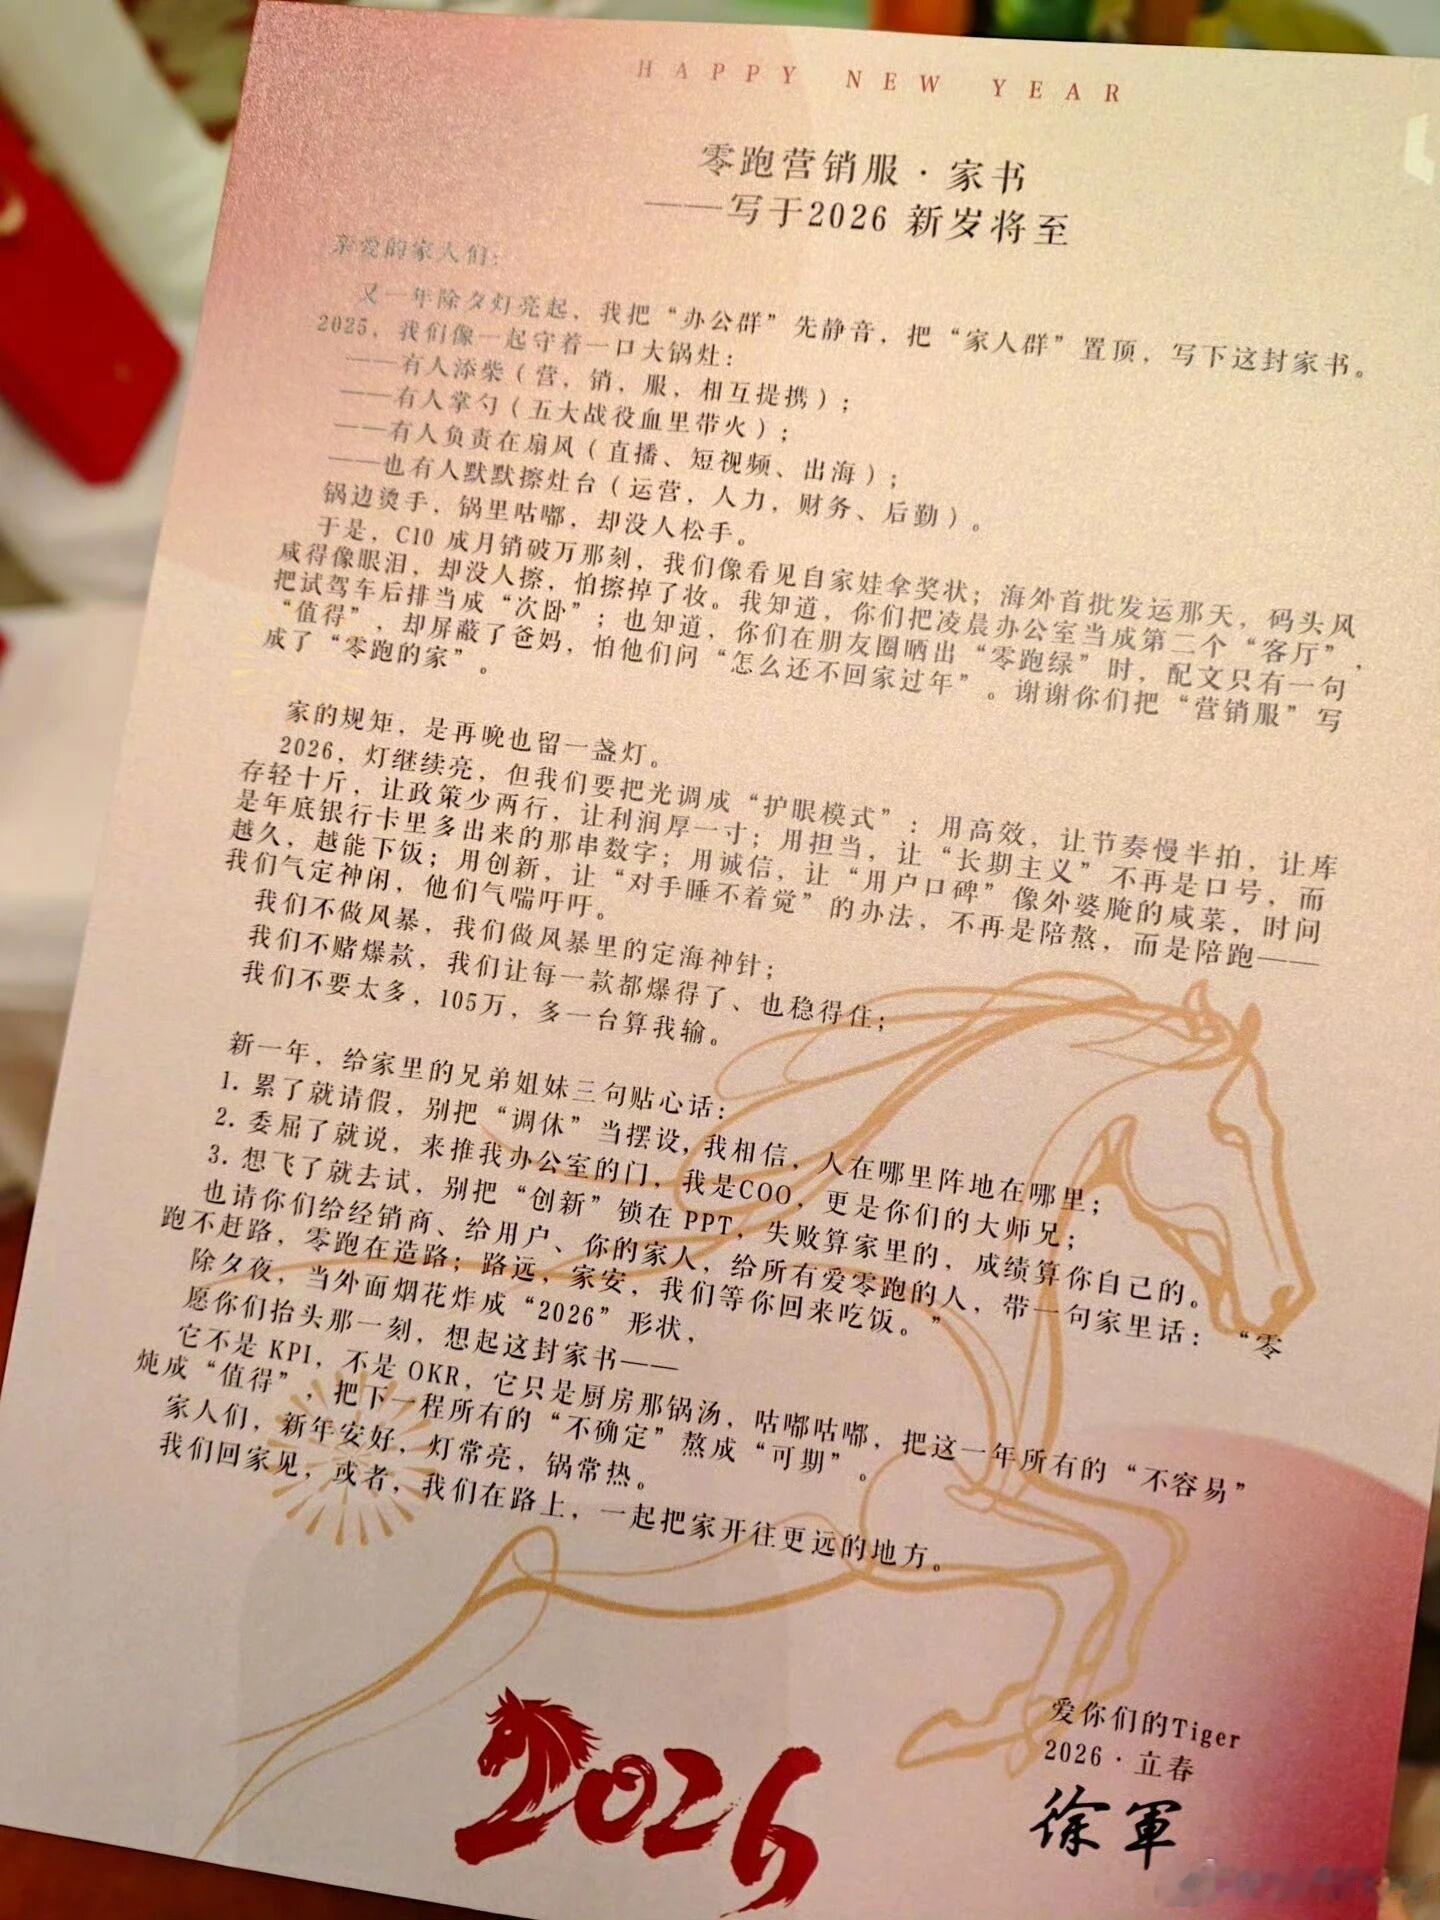 HAPPY NEW YEAR
零跑营销服·家书
——写于2026 新岁将至
亲爱的家人们:
又一年除夕灯亮起，我把“办公群”先静音，把“家人群”置顶，写下这封家书。
2025，我们像一起守着一口大锅灶：
——有人添柴（营，销，服，相互提携）；
——有人掌勺（五大战役血里带火）；
——有人负责在扇风（直播、短视频、出海）；
——也有人默默擦灶台（运营，人力，财务、后勤）。
锅边烫手，锅里咕嘟，却没人松手。
于是，C10 成月销破万那刻，我们像看见自家娃拿奖状；海外首批发运那天，码头风
咸得像眼泪，却没人擦，怕擦掉了妆。我知道，你们把凌晨办公室当成第二个“客厅”，
把试驾车后排当成“次卧”；也知道，你们在朋友圈晒出“零跑绿”时，配文只有一句
“值得”，却屏蔽了爸妈，怕他们问“怎么还不回家过年”。谢谢你们把“营销服”写
成了“零跑的家”。
家的规矩，是再晚也留一盏灯。
2026，灯继续亮，但我们要把光调成“护眼模式”：用高效，让节奏慢半拍，让库
存轻十斤，让政策少两行，让利润厚一寸；用担当，让“长期主义”不再是口号，而
是年底银行卡里多出来的那串数字；用诚信，让“用户口碑”像外婆腌的咸菜，时间
越久，越能下饭；用创新，让“对手睡不着觉”的办法，不再是陪熬，而是陪跑——
我们气定神闲，他们气喘吁吁。
我们不做风暴，我们做风暴里的定海神针；
我们不赌爆款，我们让每一款都爆得了、也稳得住；
我们不要太多，105万，多一台算我输。
新一年，给家里的兄弟姐妹三句贴心话：
1. 累了就请假，别把“调休”当摆设,我相信，人在哪里阵地在哪里；
2. 委屈了就说，来推我办公室的门，我是COO，更是你们的大师兄；
3. 想飞了就去试，别把“创新”锁在 PPT，失败算家里的，成绩算你自己的。
也请你们给经销商、给用户、你的家人，给所有爱零跑的人，带一句家里话：“零
跑不赶路，零跑在造路；路远，家安，我们等你回来吃饭。”
除夕夜，当外面烟花炸成“2026”形状，
愿你们抬头那一刻，想起这封家书——
它不是 KPI，不是 OKR，它只是厨房那锅汤，咕嘟咕嘟，把这一年所有的“不容易”
炖成“值得”，把下一程所有的“不确定”熬成“可期”。
家人们，新年安好，灯常亮，锅常热。
我们回家见，或者，我们在路上，一起把家开往更远的地方。
爱你们的Tiger
2026·立春
徐軍
2026